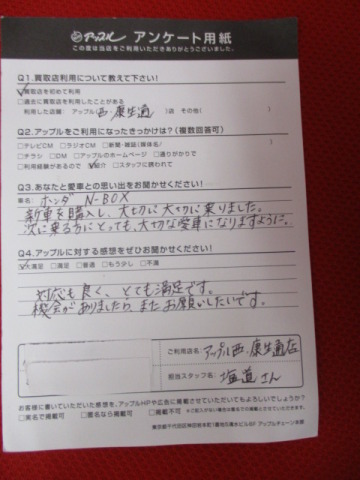 アップル アンケート用紙
この度は当店をご利用いただきありがとうございました。
Q1.買取店利用について教えて下さい!
☑買取店を初めて利用
□過去に買取店を利用したことがある
利用した店舗: アップル 西・康生通 )店 その他( )
Q2.アップルをご利用になったきっかけは?(複数回答可)
□テレビCM □ラジオCM □新聞・雑誌(媒体名/ )
□チラシ □DM □アップルのホームページ □通りがかりで
□利用経験があるので ☑紹介 □スタッフに誘われて
Q3.あなたと愛車との思い出をお聞かせください!
車名: ホンダ N-BOX
新車を購入し、大切に大切に乗りました。
次に乗る方にとっても、大切な愛車になりますように。
Q4.アップルに対する感想をぜひお聞かせください!
☑大満足 □満足 □普通 □もう少し □不満
対応も良く、とても満足です。
機会がありましたら、またお願いしたいです。
ご利用店名: アップル西・康生通店
担当スタッフ名: 塩道さん
お客様に書いていただいた感想を、アップルHPや広告に掲載させていただいてもよろしいでしょうか?
□実名で掲載可 □匿名なら掲載可 □掲載不可 ※ご記入がない場合は匿名での掲載とさせていただきます。